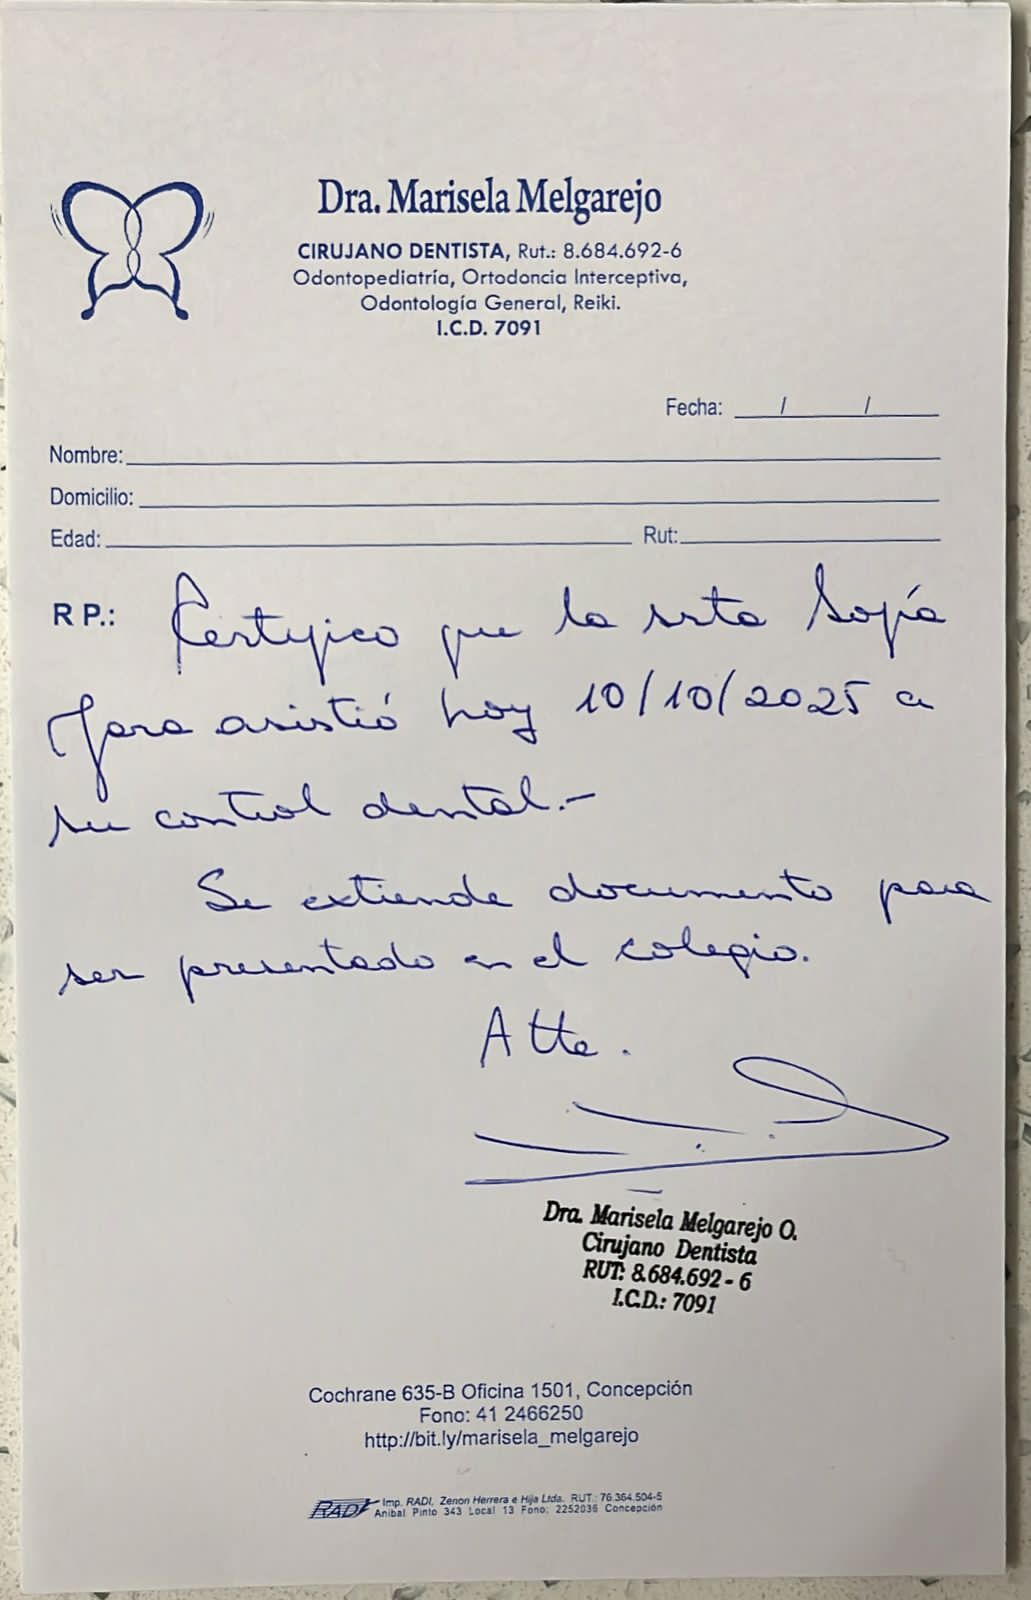 Dra. Marisela Melgarejo
CIRUJANO DENTISTA, Rut.: 8.684.692-6
Odontopediatría, Ortodoncia Interceptiva,
Odontología General, Reiki.
I.C.D. 7091
Fecha: / /
Nombre:
Domicilio:
Edad: Rut:
R P.: Certifico que la srta Sofía
Jara asistió hoy 10/10/2025 a
su control dental.-
Se extiende documento para
ser presentado en el colegio.
Atte.
Dra. Marisela Melgarejo O.
Cirujano Dentista
RUT: 8.684.692 - 6
I.C.D.: 7091
Cochrane 635-B Oficina 1501, Concepción
Fono: 41 2466250
http://bit.ly/marisela_melgarejo
RADI Imp. RADI, Zenon Herrera e Hija Ltda. RUT.: 76.364.504-5
Anibal Pinto 343 Local 13 Fono: 2252036 Concepción